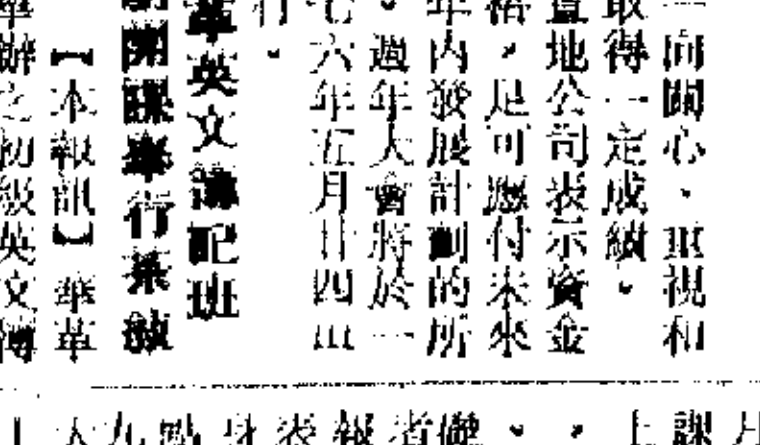 一向關心、重視和
取得一定成績。
置地公司表示資金
裕，足可應付未來
年內發展計劃的所
。週年大會將於一
七六年五月廿四日
行。
革英文簿記班
開課舉行茶敍
【本報訊】華革
舉辦之初級英文簿
課
上
報
表
點
九